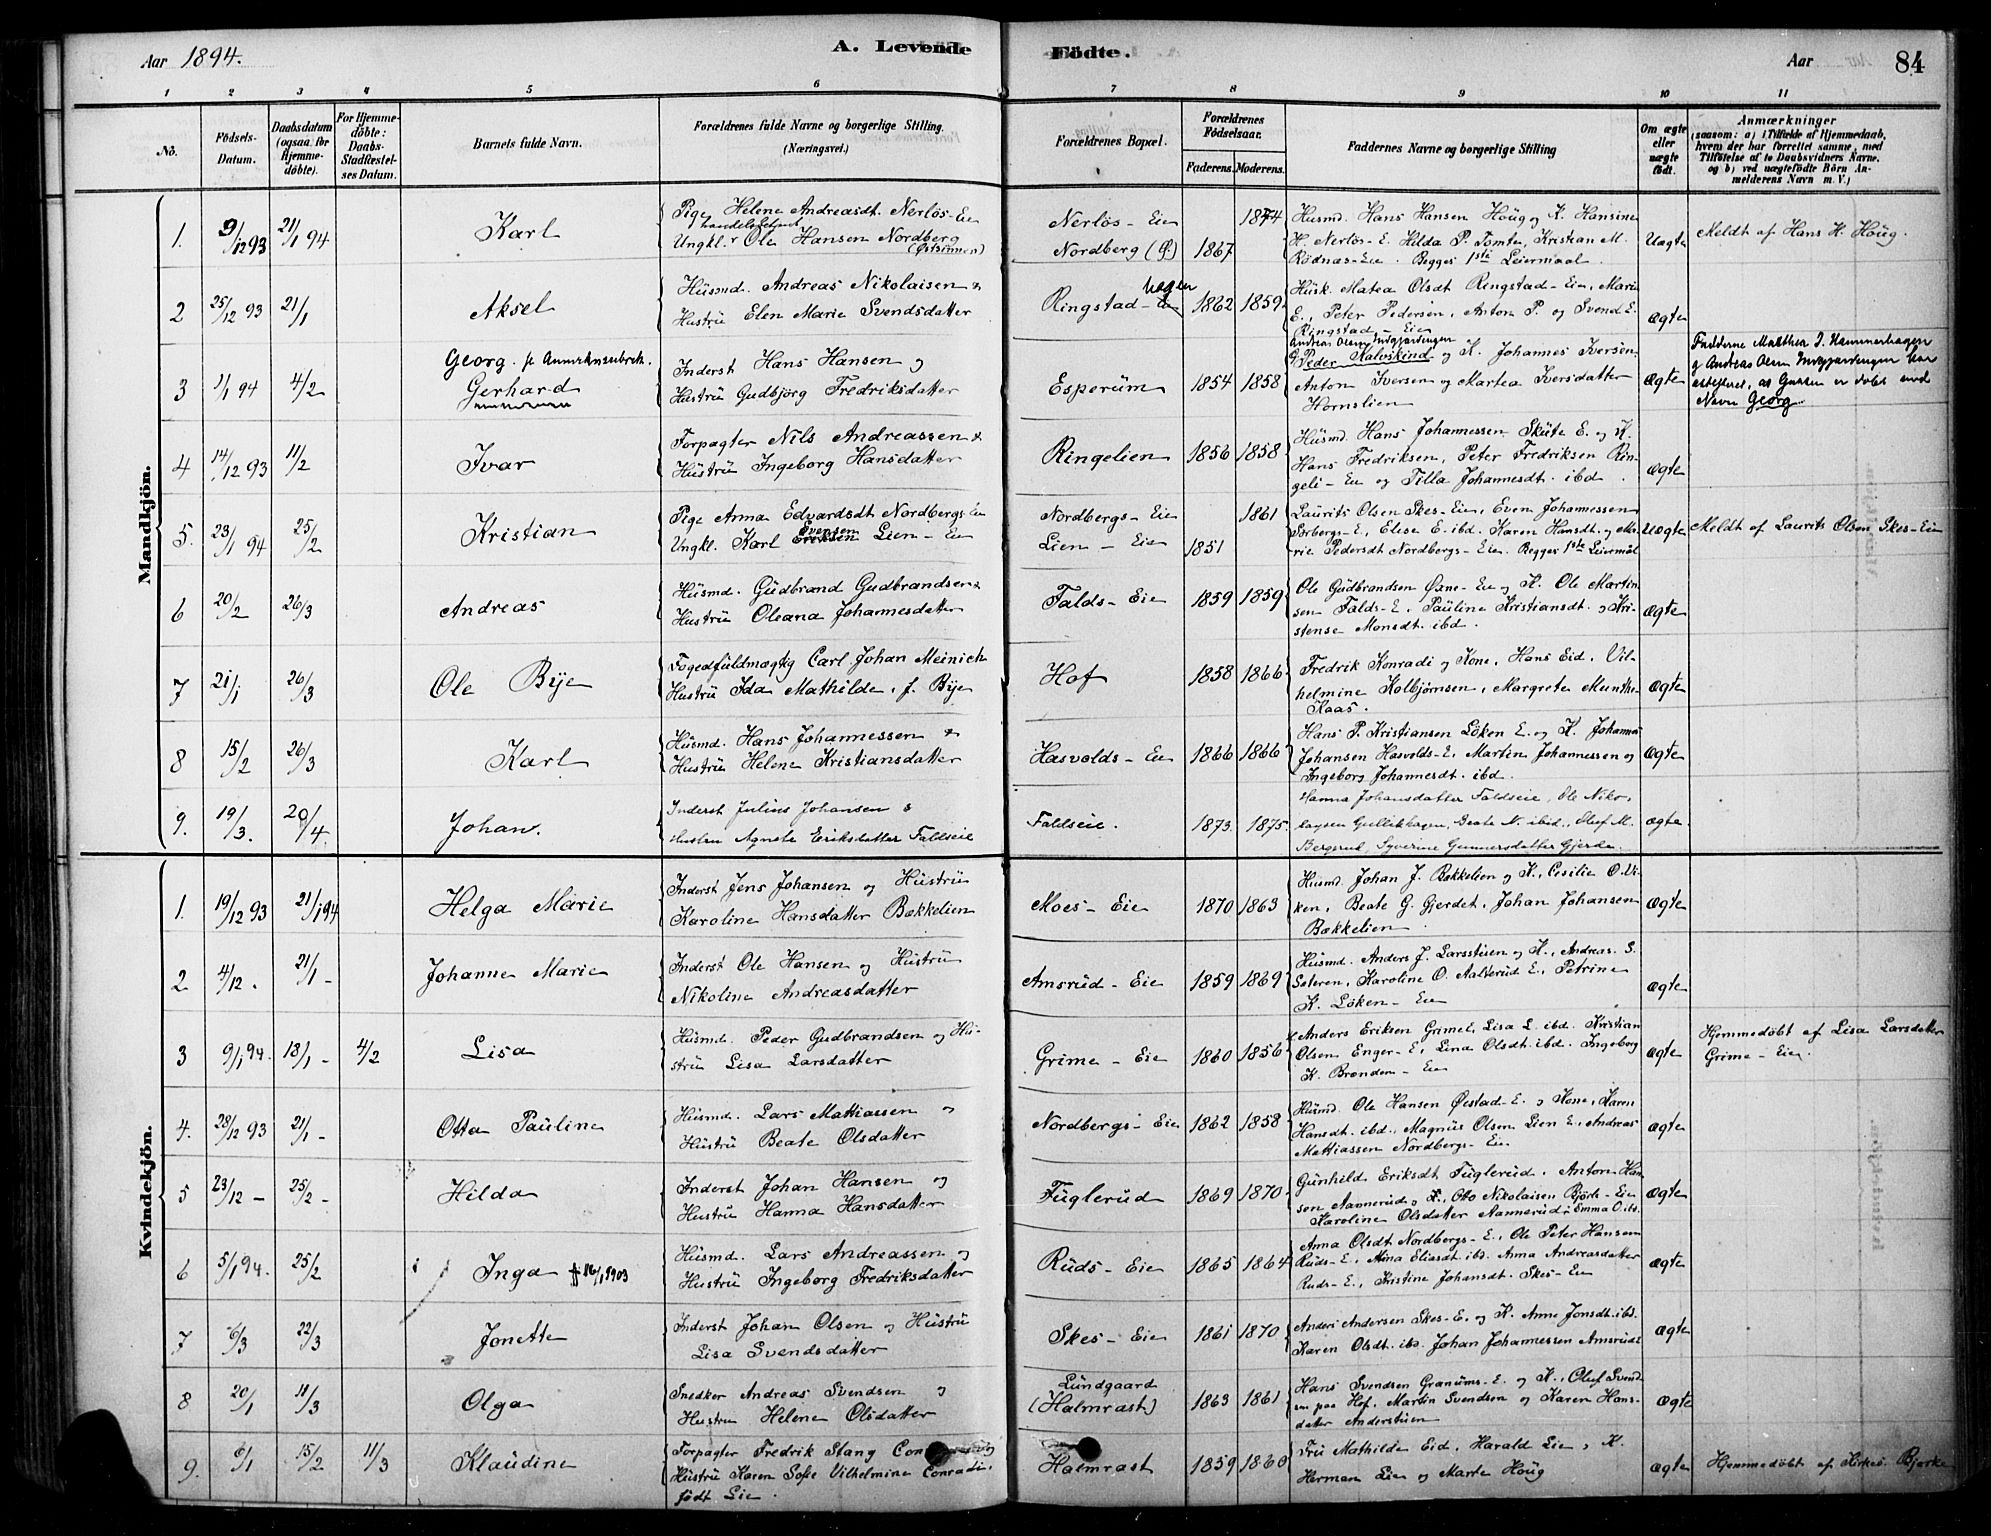 Aar 1894.
A. Levende
Födte.
Aar
84
1 2 3 4 5 6 7 8 9 10 11
No.
Födsels-
Datum.
Daabsdatum
(ogsaa for
Hjemme-
döbte).
For Hjemme-
döbte:
Daabs-
Stadfæstel-
ses Datum.
Barnets fulde Navn.
Forældrenes fulde Navne og borgerlige Stilling.
(Næringsvei.)
Forældrenes Bopæl.
Forældrenes
Födselsaar.
Faderens.
Moderens.
Faddernes Navne og borgerlige Stilling
Om ægte
eller
uægte
födt.
Anmærkninger
(saasom: a) i Tilfælde af Hjemmedaab,
hvem der har forrettet samme, med
Tilföielse af to Daabsvidners Navne,
og b) ved uægtefödte Börn An-
melderens Navn m. V.)
Mandkjön.
1.
9/12 93
21/1 94
Karl
Pige Helene Andreasdt. Nerlös-Eie
handelsbetjent
Ungkl. Ole Hansen Nordberg
(Østsinnen)
Nerlös-Eie
Nordberg (Ø)
1867
1874
Husmd. Hans Hansen Houg og K. Hansine
H. Nerlös-E. Hilda P. Tomte, Kristian M.
Rödnæs-Eie. Begges 1ste Leiermaal.
Uægte
Meldt af Hans H. Houg.
2
25/12 93
21/1
Aksel
Husmd. Andreas Nikolaisen &
Hustru Elen Marie Svendsdatter
Ringstad-
1862
1859
Husk. Matea Olsdt Ringstad-Eie, Marie
E., Peter Pedersen, Anton P. og Svend E.
Ringstad-Eie
Ægte
3
1/1 94
4/2
Georg. se Anmerkningsrubrik.
Gerhard
Inderst Hans Hansen og
Hustru Gudbjörg Fredriksdatter
Esperum
1854
1858
Andreas Olsen
Peder Kalvskind og K. Johannes Iversen
Anton Iversen og Martea Iversdatter
Hornslien
Ægte
Fadderne Mathea J. Hammerhagen
og Andreas Olsen har
attesteret, at Gutten er döbt med
Navn Georg.
4
14/12 93
11/2
Ivar
Forpagter Nils Andreassen &
Hustru Ingeborg Hansdatter
Ringelien
1856
1858
Husmd. Hans Johannessen Skute E. og K.
Hans Fredriksen, Peter Fredriksen Rin-
geli-Eie og Tilla Johannesdt. ibd.
Ægte
5.
23/1 94
25/2
Kristian
Pige Anna Edvardsdt Nordbergs-Eie
Evensen
Ungkl. Karl Lien-Eie
Nordbergs-Eie
Lien-Eie
1851
1861
Laurits Olsen Skes-Eie, Even Johannessen
Sörbergs-E., Elise E. ibd. Karen Hansdt. og Ma-
rie Pedersdt Nordbergs-Eie. Begges 1ste Leiermål
Uægte
Meldt af Laurits Olsen Skes-Eie
6
20/2
26/3
Andreas
Husmd. Gudbrand Gudbrandsen &
Hustru Oleana Johannesdatter
Falds-Eie
1859
1859
Ole Gudbrandsen Øxne-Eie og K. Ole Martin
sen Falds-E. Pauline Kristiansdt. og Kri-
stense Monsdt. ibd.
Ægte
7
21/1
26/3
Ole Bye
Fogedfuldmægtig Carl Johan Meinich
Hustru Ida Mathilde, f. Bye
Hof
1858
1866
Fredrik Konradi og Kone, Hans Eid, Vil-
helmine Kolbjørnsen, Margrete Munthe
Kaas.
Ægte
8
15/2
26/3
Karl
Husmd. Hans Johannessen &
Hustru Helene Kristiansdatter
Hasvolds-Eie
1866
1866
Hans P. Kristiansen Löken E. og K. Johannes
Johansen Hasvolds-E. Martin Johannessen og
Ingeborg Johannesdt. ibd.
Ægte
9.
19/3.
20/4.
Johan.
Inderst Julius Johansen &
Hustru Agnete Eriksdatter Faldseie
Faldseie.
1873.
1875.
Hanna Johansdatter Faldseie, Ole Niko-
laysen Gullikhagen, Beate N. ibid., Oluf M.
Bergerud, Syverine Gunnersdatter Gjerde.
Ægte.
Kvindekjön.
1.
19/12 93
21/1 94
Helga Marie
Inderst Jens Johansen og Hustru
Karoline Hansdatter Bækkelien
Moes-Eie
1870
1863
Husmd. Johan J. Bækkelien og K., Cesilie O. Vi-
ken, Beate G. Gjerdet, Johan Johansen
Bækkelien
Ægte
2
4/12.
21/1-
Johanne Marie
Inderst Ole Hansen og Hustru
Nikoline Andreasdatter
Amsrud-Eie
1859
1869
Husmd. Anders J. Larsstuen og K., Andreas S.
Seteren, Karoline O. Aalterud E., Petrine
K. Löken-Eie
Ægte
3
9/1 94.
18/1-
4/2
Lisa
Husmd. Peder Gudbrandsen og Hu-
stru Lisa Larsdatter
Grime-Eie
1860
1856
Anders Eriksen Grime E, Lisa L. ibd. Kristian
Olsen Enger-E, Lina Olsdt. ibd. Ingeborg
K. Brænden-Eie
Ægte
Hjemmedöbt af Lisa Larsdatter
Grime-Eie.
4.
28/12 93
21/1-
Otta Pauline
Husmd. Lars Mattiassen og
Hustru Beate Olsdatter
Nordbergs-Eie
1862
1858
Husmd. Ole Hansen Øistad-E. og Kone, Karen
Hansdt. ibd., Magnus Olsen Lien E., Andreas
Mattiassen Nordbergs-Eie
Ægte
5
23/12-
25/2-
Hilda
Inderst Johan Hansen og
Hustru Hanna Hansdatter
Fuglerud
1869
1870
Gunhild Eriksdt Fuglerud, Anton Han
sen Aannerud og K., Otto Nikolaisen Björk-Eie
Karoline Olsdatter Aannerud, Emma O. ibd.
Ægte
6
5/1 94.
25/2
Inga † 16/1 1903
Husmd. Lars Andreassen og
Hustru Ingeborg Fredriksdatter
Ruds-Eie
1865
1864
Anna Olsdt Nordbergs-E., Ole Peter Hansen
Ruds-E., Mina Eliasdt ibd. Anna Andreasdatter
Ruds-E., Kristine Johansdt. Skes-Eie
Ægte
7
6/3
22/3
Jonette
Inderst Johan Olsen og Hustru
Lisa Svendsdatter
Skes-Eie
1861
1870
Anders Andersen Skes-E. og K. Anne Jonsdt. ibd.
Karen Olsdt. ibd. Johan Johannessen Amsrud
Ægte
8
20/1
11/3
Olga
Snedker Andreas Svendsen og
Hustru Helene Olsdatter
Lundgaard
(Halmrast)
1863
1861
Hans Svendsen Granums-E. og K., Oluf Svend
sen paa Hof, Martin Svendsen og Karen Hans-
datter Anderstuen
Ægte
9.
6/1
15/2
11/3
Klaudine
Forpagter Fredrik Stang og
Hustru Karen Sofie Vilhelmine Conradi,
födt Lie.
Halmrast
1859
1860
Fru Mathilde Eid, Harald Lie, K.
Herman Lie og Marte Houg
Ægte
Hjemmedöbt af Kirkes. Bjerke